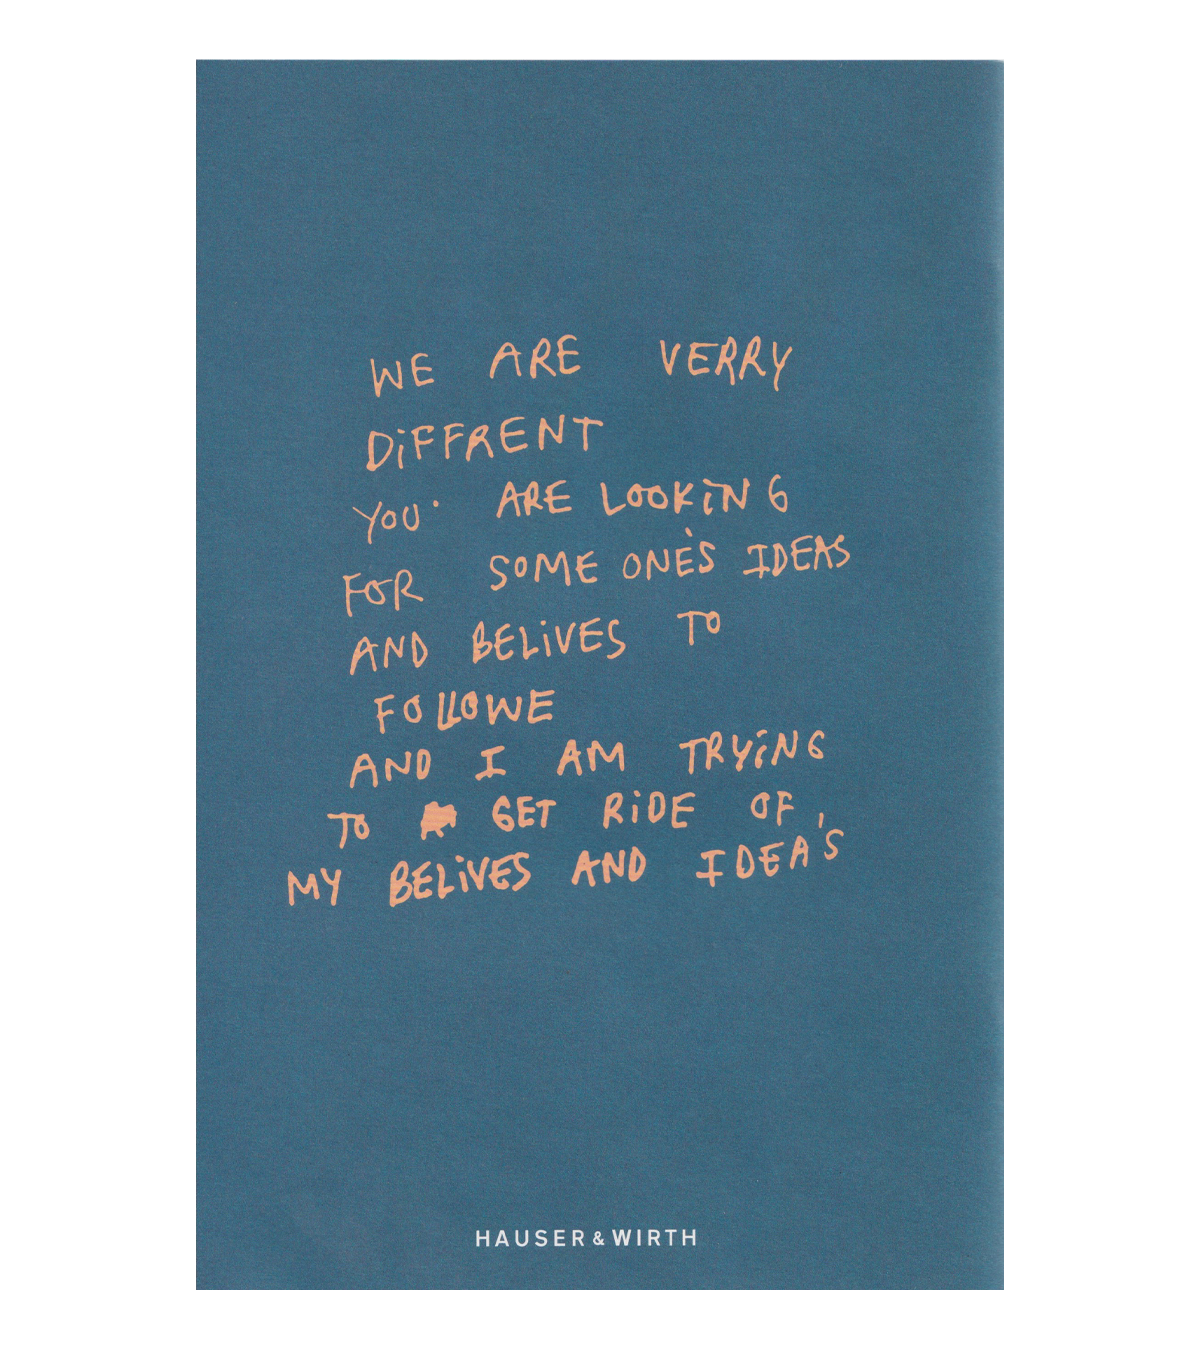 WE ARE VERRY
DiFFRENT
YOU· ARE LOOKiNG
FOR SOME ONE'S IDEAS
AND BELiVES TO
FOLLOWE
AND I AM TRYiNG
TO GET RiDE OF
MY BELiVES AND IDEA'S
HAUSER & WIRTH